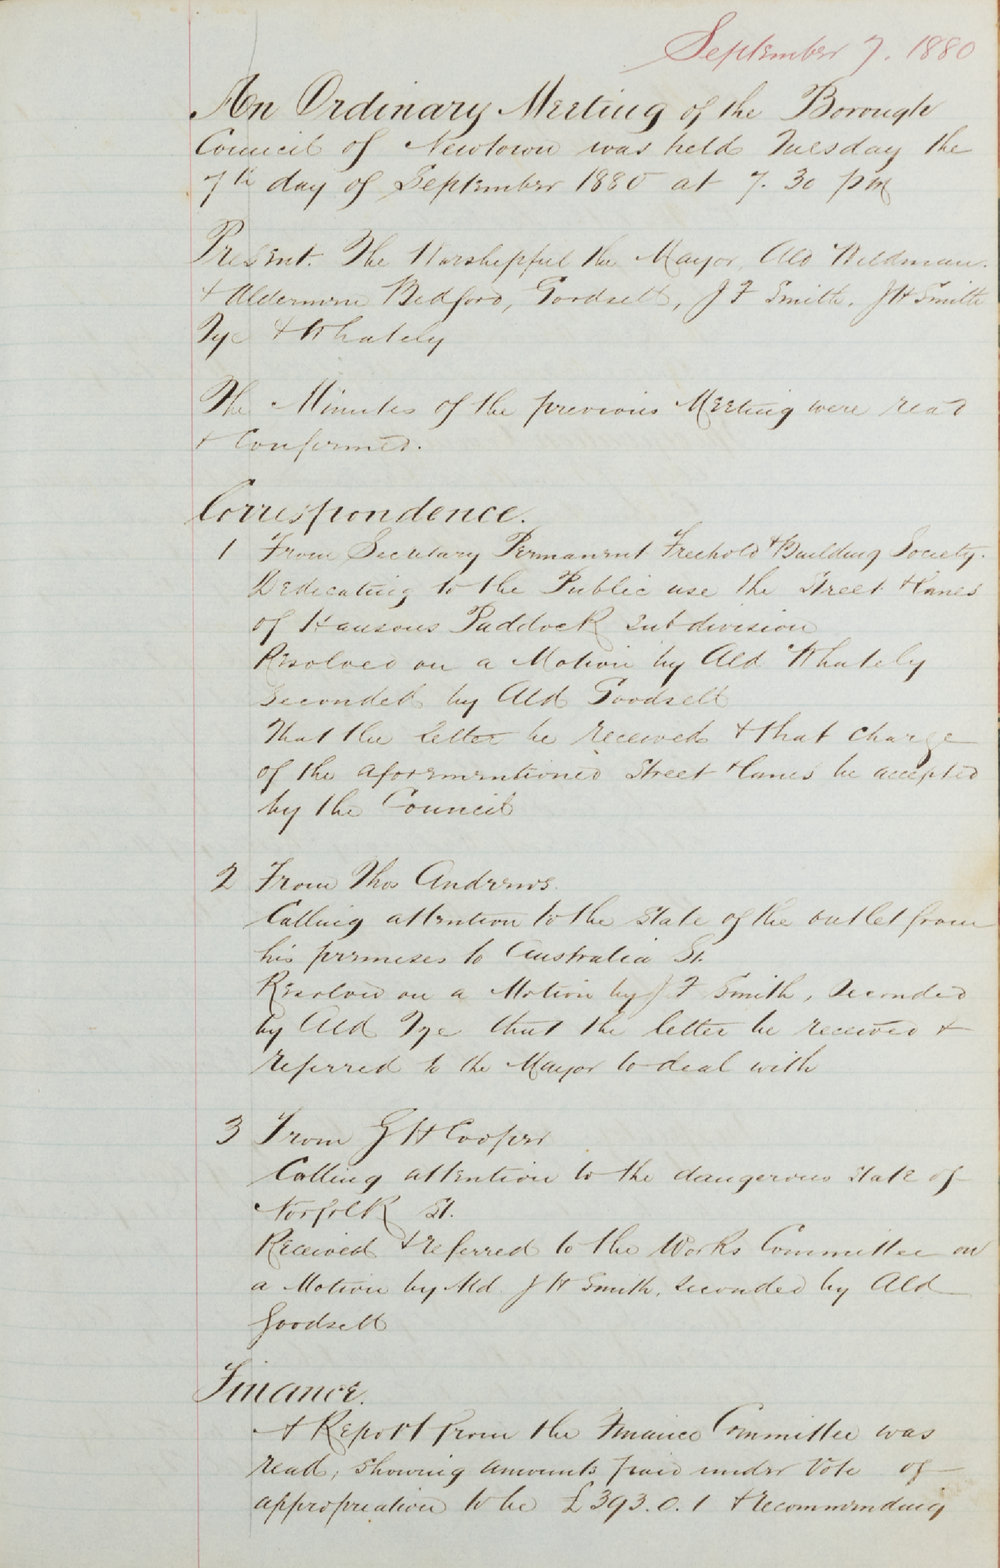 September 7. 1880
An Ordinary Meeting of the Borough
Council of Newtown was held Tuesday the
7th day of September 1880 at 7.30 pm
Present. The Worshipful the Mayor, Ald Wildman.
& Aldermen Bedford, Goodsell, J F Smith, J H Smith
Tye & Whately
The Minutes of the previous Meeting were read
& Confirmed.
Correspondence.
1 From Secretary Permanent Freehold & Building Society.
Dedicating to the Public use the Street & lanes
of Hansons Paddock subdivision
Resolved on a Motion by Ald Whately
Seconded by Ald Goodsell
That the letter be received & that charge
of the aforementioned Street & lanes be accepted
by the Council
2 From Thos Andrews.
Calling attention to the state of the outlet from
his premises to Australia St.
Resolved on a Motion by J F Smith, Seconded
by Ald Tye that the letter be received &
referred to the Mayor to deal with
3 From G H Cooper
Calling attention to the dangerous state of
Norfolk St.
Received & referred to the Works Committee on
a Motion by Ald J H Smith, seconded by Ald
Goodsell
Finance.
A Report from the Finance Committee was
read, showing amounts paid under Vote of
appropriation to be £393.0.1 & recommending